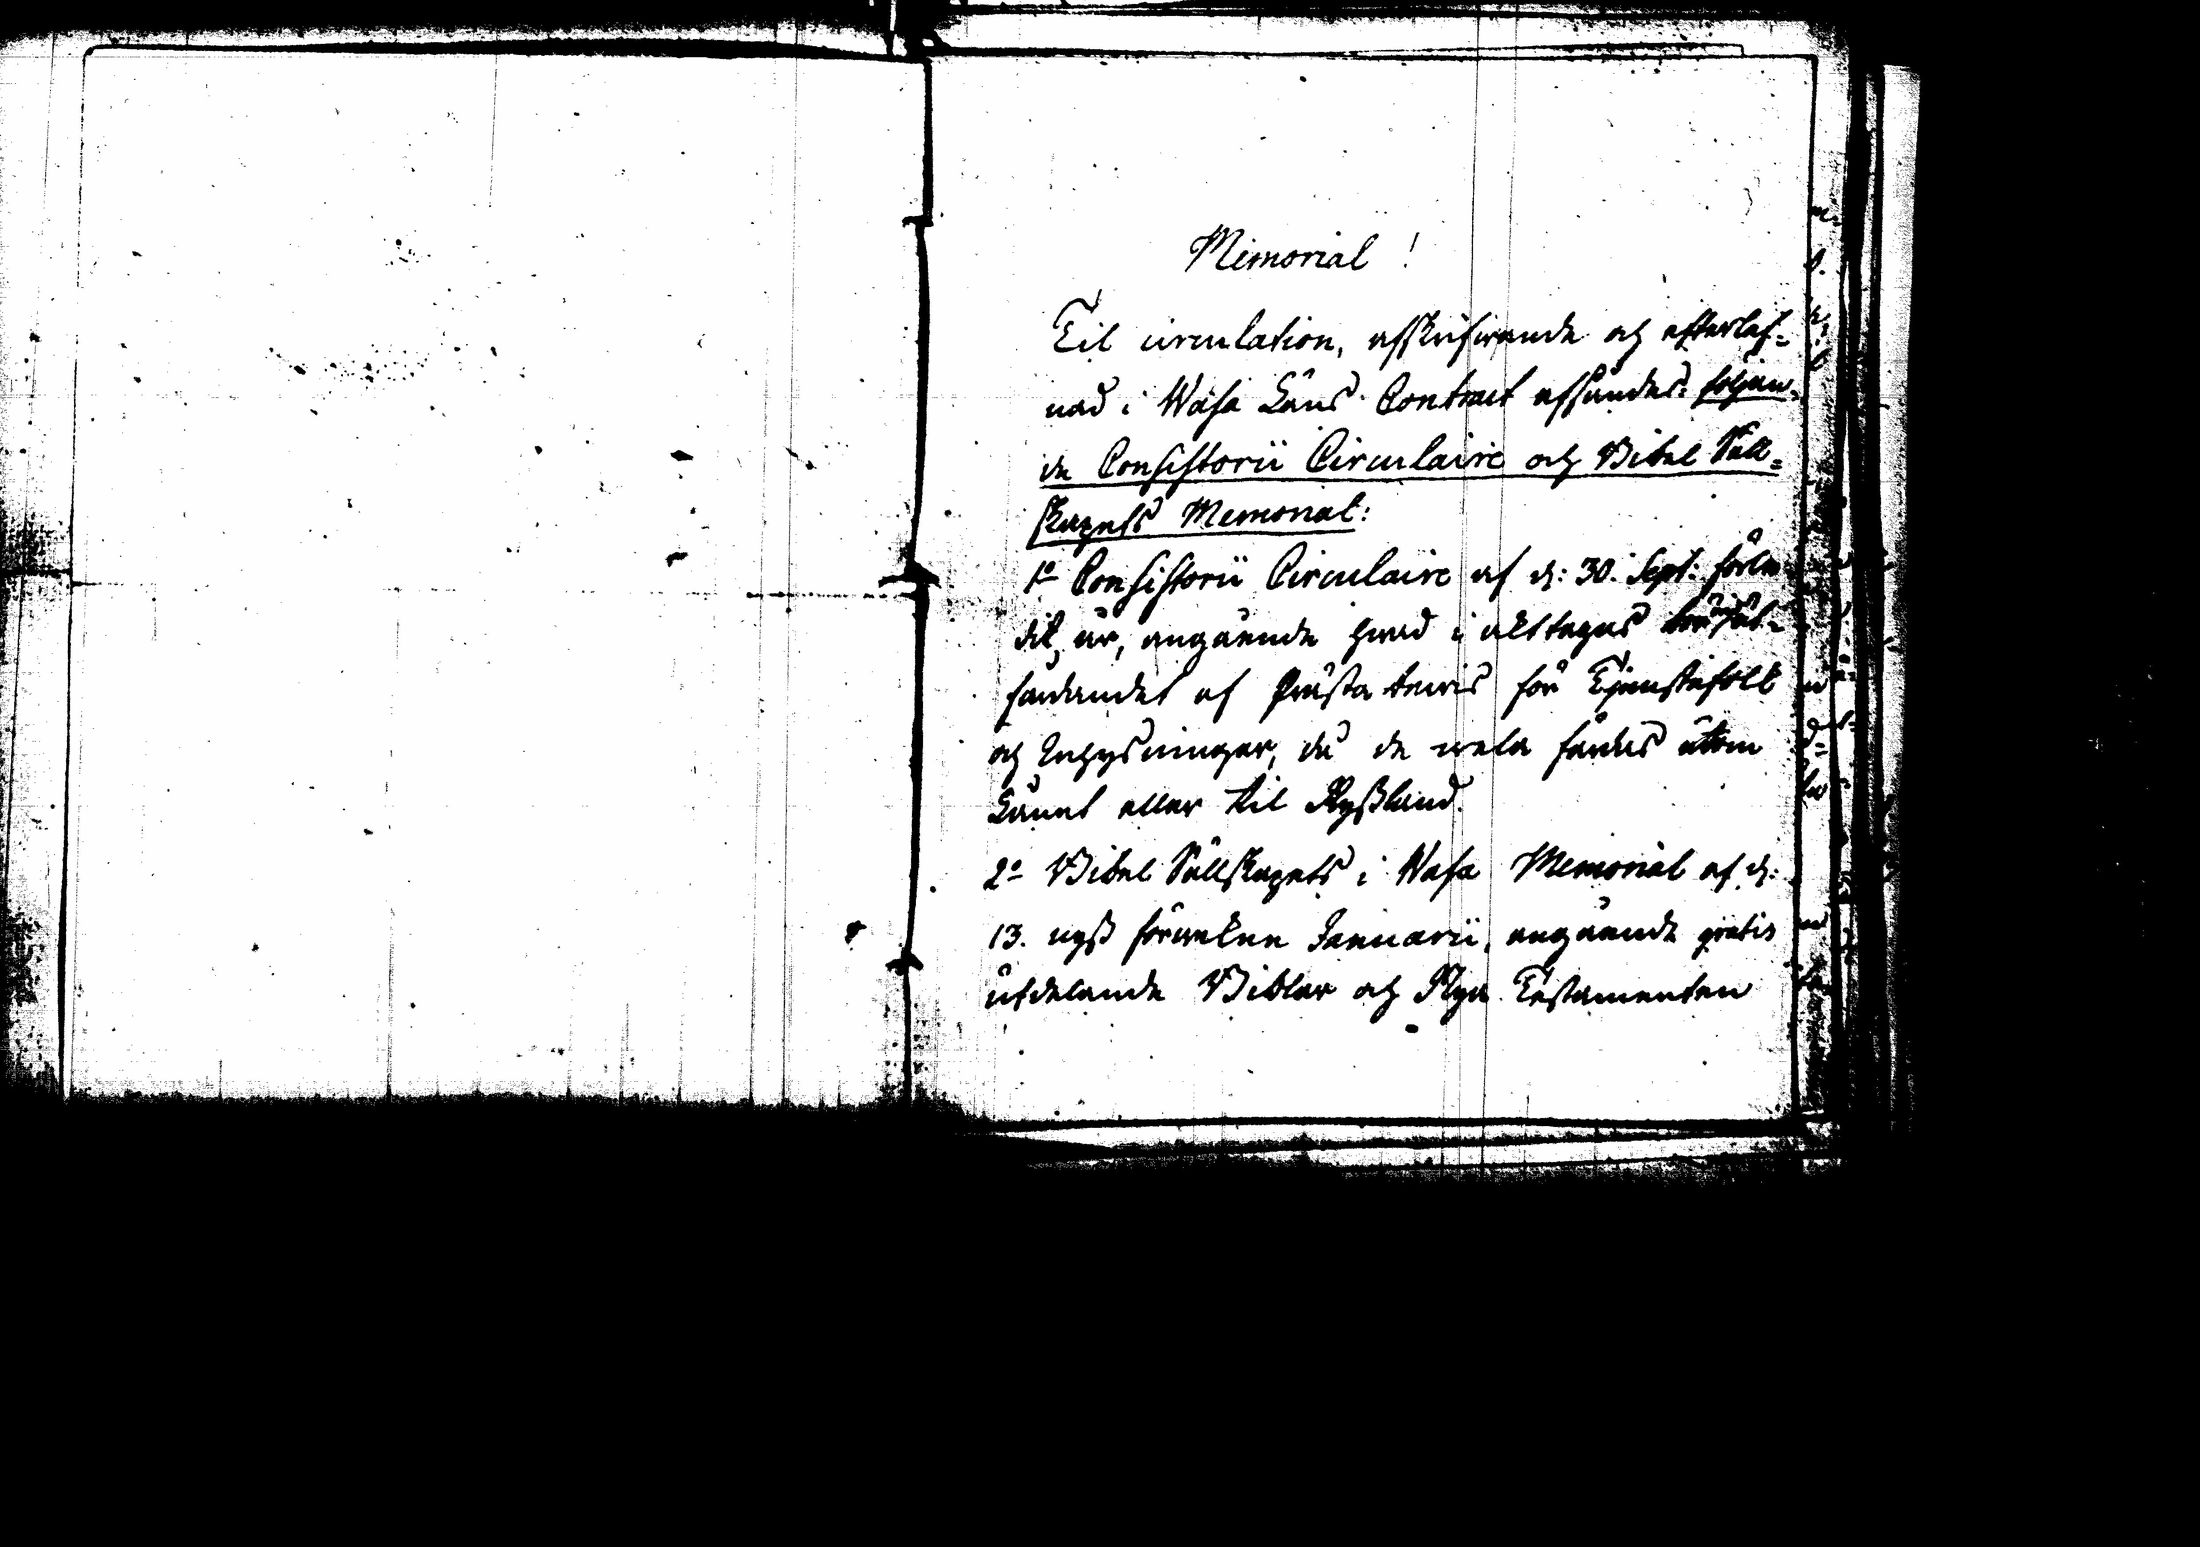 Memorial !
Til circulation, afskrifwande och efterlef=
nad i Wasa Läns Contract afsändes: följan=
de Consistorii Circulaire och Bibel Säll=
skapets Memorial:
1º Consistorii Circulaire af d: 30. Sept: förle=
dit år, angående hwad i akttagas wid
färdandet af Prästa bewis för Tjenstefolk
och Inhysningar, då de wela färdas utom
Länet eller til Ryßland.
2º Bibel Sällskapets i Wasa Memorial af d:
13. nyß förwekne Januarii, angående gratis
utdelande Biblar och Nya Testamenten